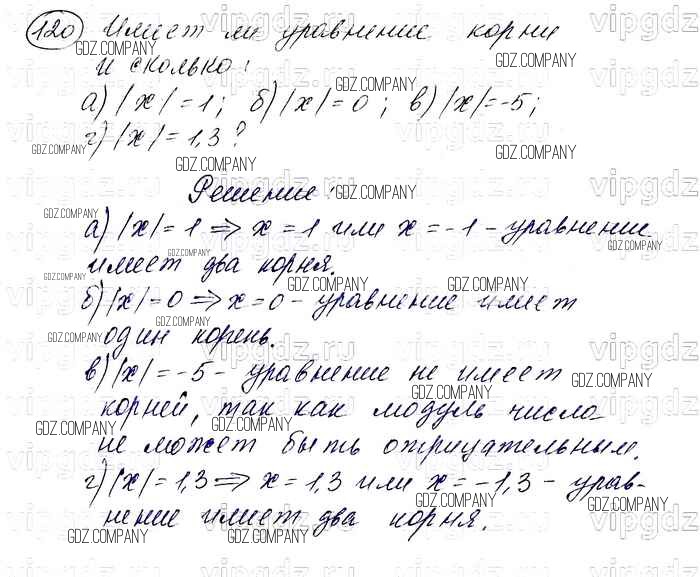 120 Имеет ли уравнение корни
и сколько:
а) |x| = 1; б) |x| = 0; в) |x| = -5;
г) |x| = 1,3?
Решение:
а) |x| = 1 ⇒ x = 1 или x = -1 - уравнение
имеет два корня.
б) |x| = 0 ⇒ x = 0 - уравнение имеет
один корень.
в) |x| = -5 - уравнение не имеет
корней, так как модуль числа
не может быть отрицательным.
г) |x| = 1,3 ⇒ x = 1,3 или x = -1,3 - урав-
нение имеет два корня.
GDZ.COMPANY
vipgdz.ru